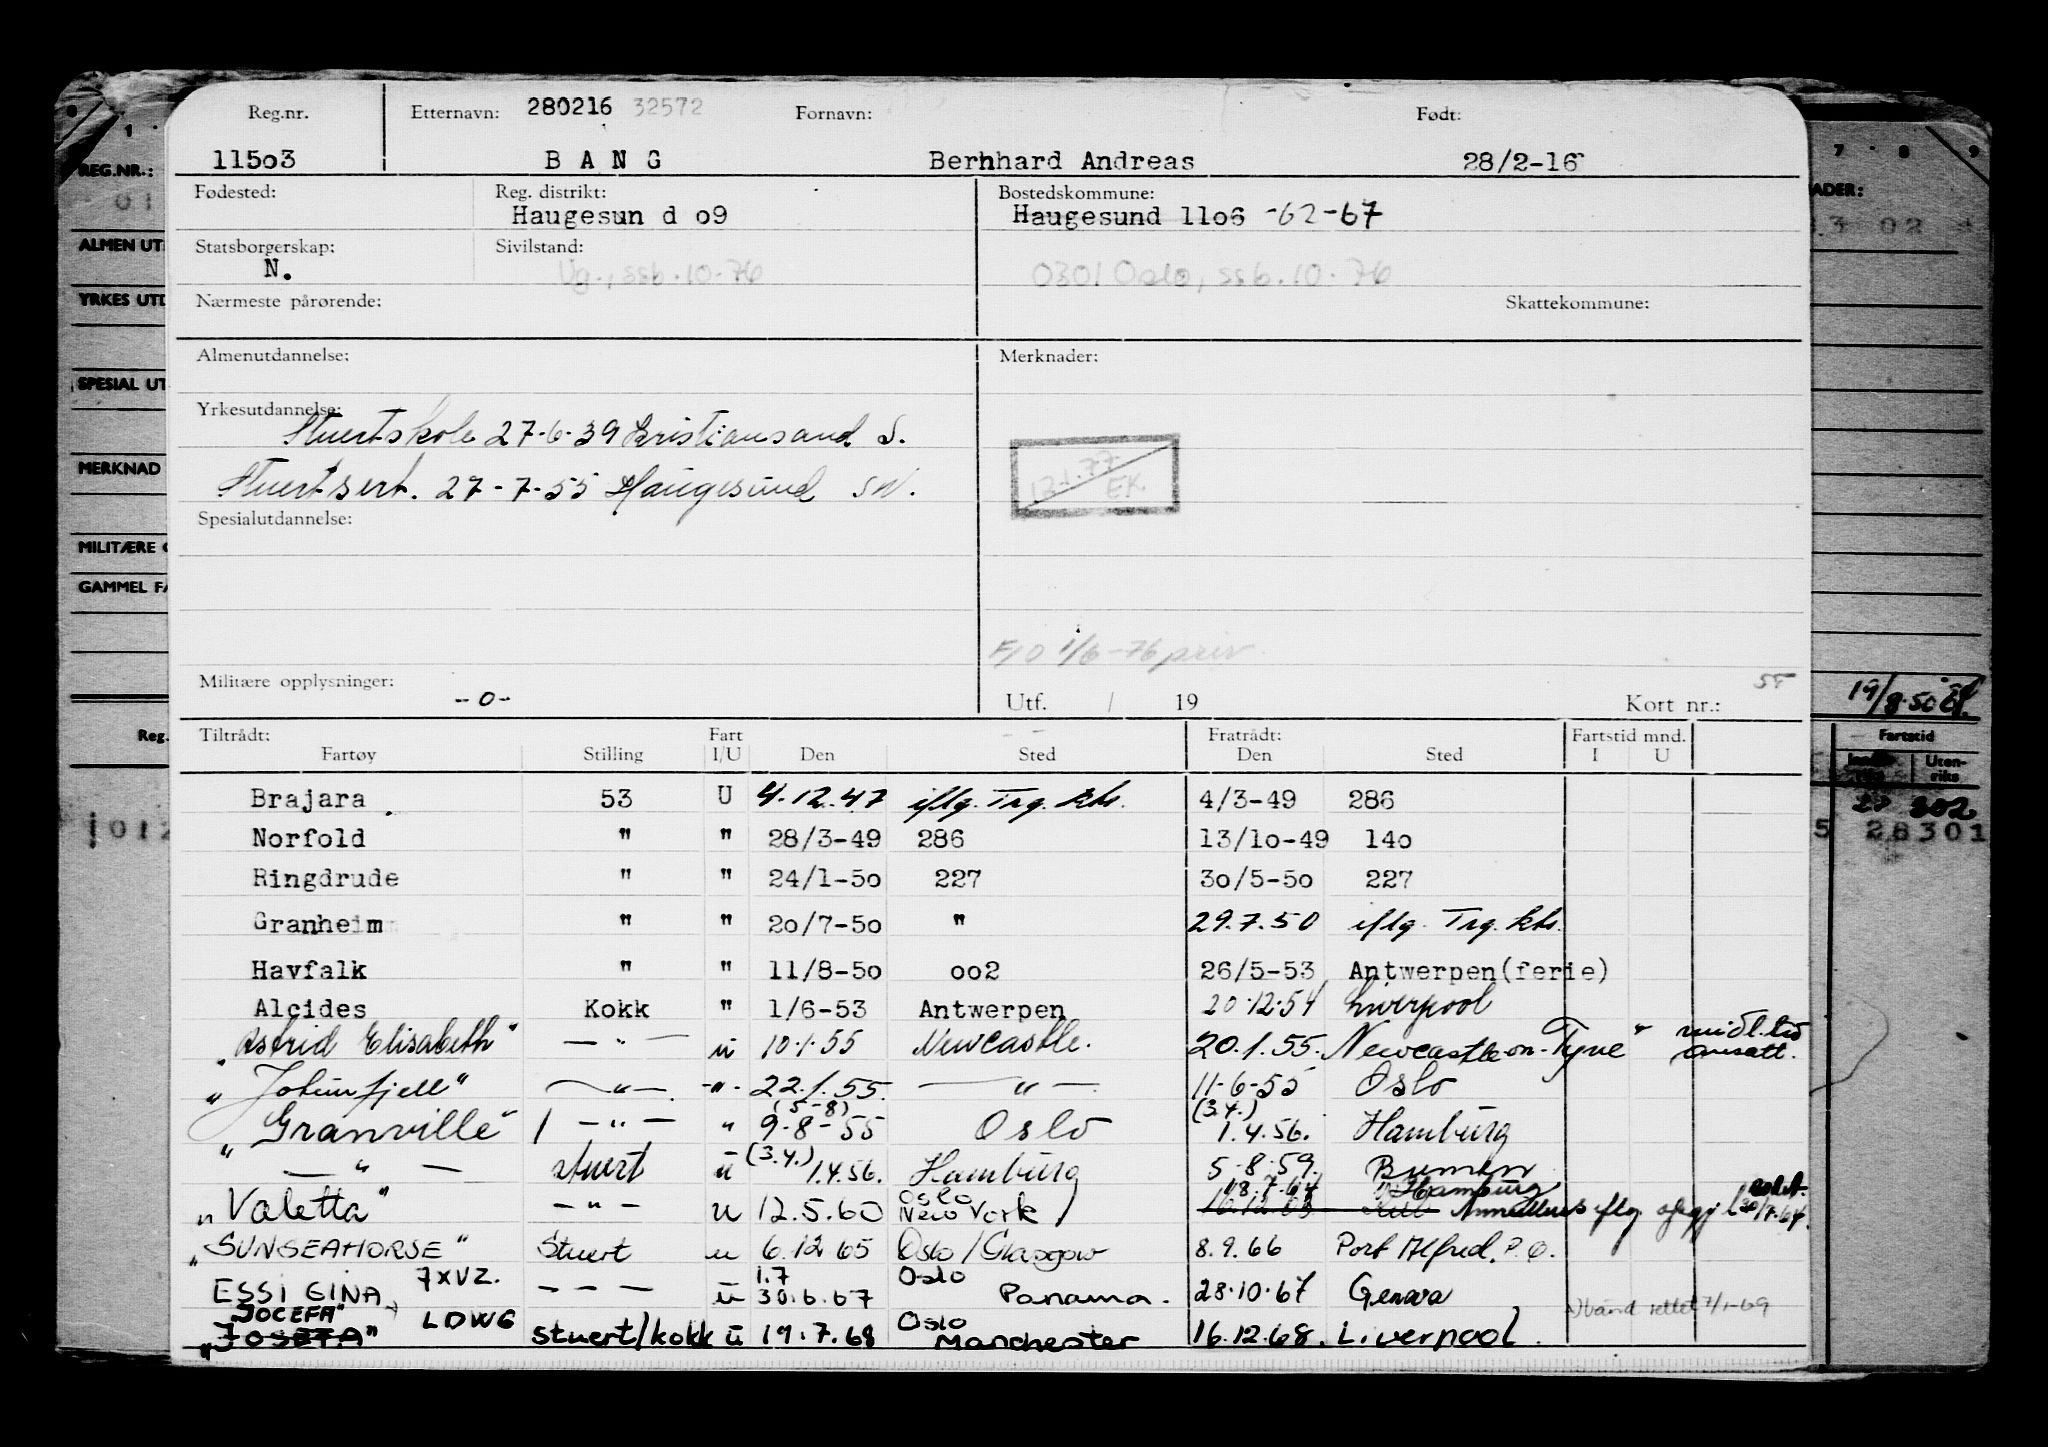 Reg.nr. Etternavn: 280216 32572 Fornavn: Født:
11503 B A N G Bernhard Andreas 28/2-16
Fødested: Reg. distrikt: Bostedskommune:
Haugesun d o9 Haugesund 11o6 -62-67
Statsborgerskap: Sivilstand:
N. Ug., ssb.10-76 0301 Oslo, ssb.10.76
Nærmeste pårørende: Skattekommune:
Almenutdannelse: Merknader:
Yrkesutdannelse:
Stuertskole 27-6-39 Kristiansand S.
Stuertsert. 27-7-55 Haugesund SW.
12.1.77
EK.
Spesialutdannelse:
F/O 1/6-76 priv.
Militære opplysninger: -o- Utf. / 19 Kort nr.:
Tiltrådt: Fart Fratrådt: Fartstid mnd.
Fartøy Stilling I/U Den Sted Den Sted I U
Brajara 53 U 4.12.47 iflg. Trg. kts. 4/3-49 286
Norfold " " 28/3-49 286 13/10-49 14o
Ringdrude " " 24/1-5o 227 3o/5-5o 227
Granheim " " 2o/7-5o " 29.7.50 iflg. Trg. kts.
Havfalk " " 11/8-5o oo2 26/5-53 Antwerpen(ferie)
Alcides Kokk " 1/6-53 Antwerpen 20.12.54 Liverpool
"Astrid Elisabeth" — " — u 10.1.55 Newcastle. 20.1.55. Newcastle on-Tyne" midl.tid ansatt.
"Jotunfjell" — " — -"- 22.1.55. — " — 11-6-55 Oslo
(5-8) (3.4.)
"Granville" / — " — " 9-8-55 Oslo 1.4.56. Hamburg
— " — stuert u (3.4.) 1.4.56. Hamburg 5-8-59. Bremen
Oslo 18.7.64 Hamburg
"Valetta" — " — u 12.5.60 New York / 16.12.63
"SUNSEAHORSE" Stuert u 6.12.65 Oslo/Glasgow 8.9.66 Port Alfred. P.Q.
7XVZ. 1.7 Oslo
ESSI GINA — — — u 30.6.67 Panama. 28.10.67 Genova
"JOCEFA" LDWG Oslo rettet 7/1-69
"JOSEFA" stuert/kokk u 19.7.68 Manchester 16.12.68. Liverpool.
REG.NR.:
ALMEN UT
YRKES UTD
SPESIAL UT
MERKNAD
MILITÆRE O
GAMMEL FA
Reg.
012
7 · 8 9
ADER:
02
19/8.50
Fartstid
Uten-
riks
302
5 28301